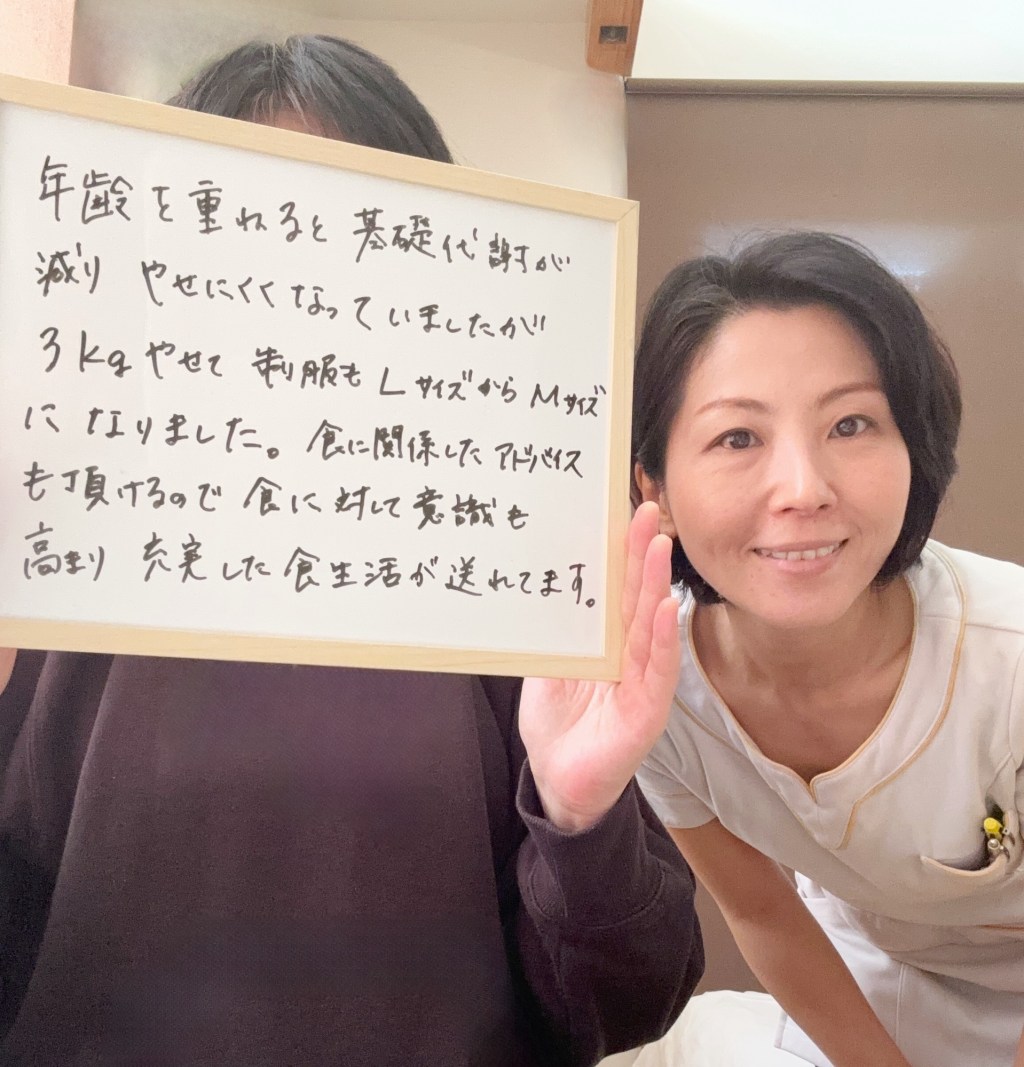 年齢を重ねると基礎代謝が
減り やせにくくなっていましたが
3kgやせて 制服もLサイズからMサイズ
になりました。食に関係したアドバイス
も頂けるので食に対して意識も
高まり 充実した食生活が送れてます。